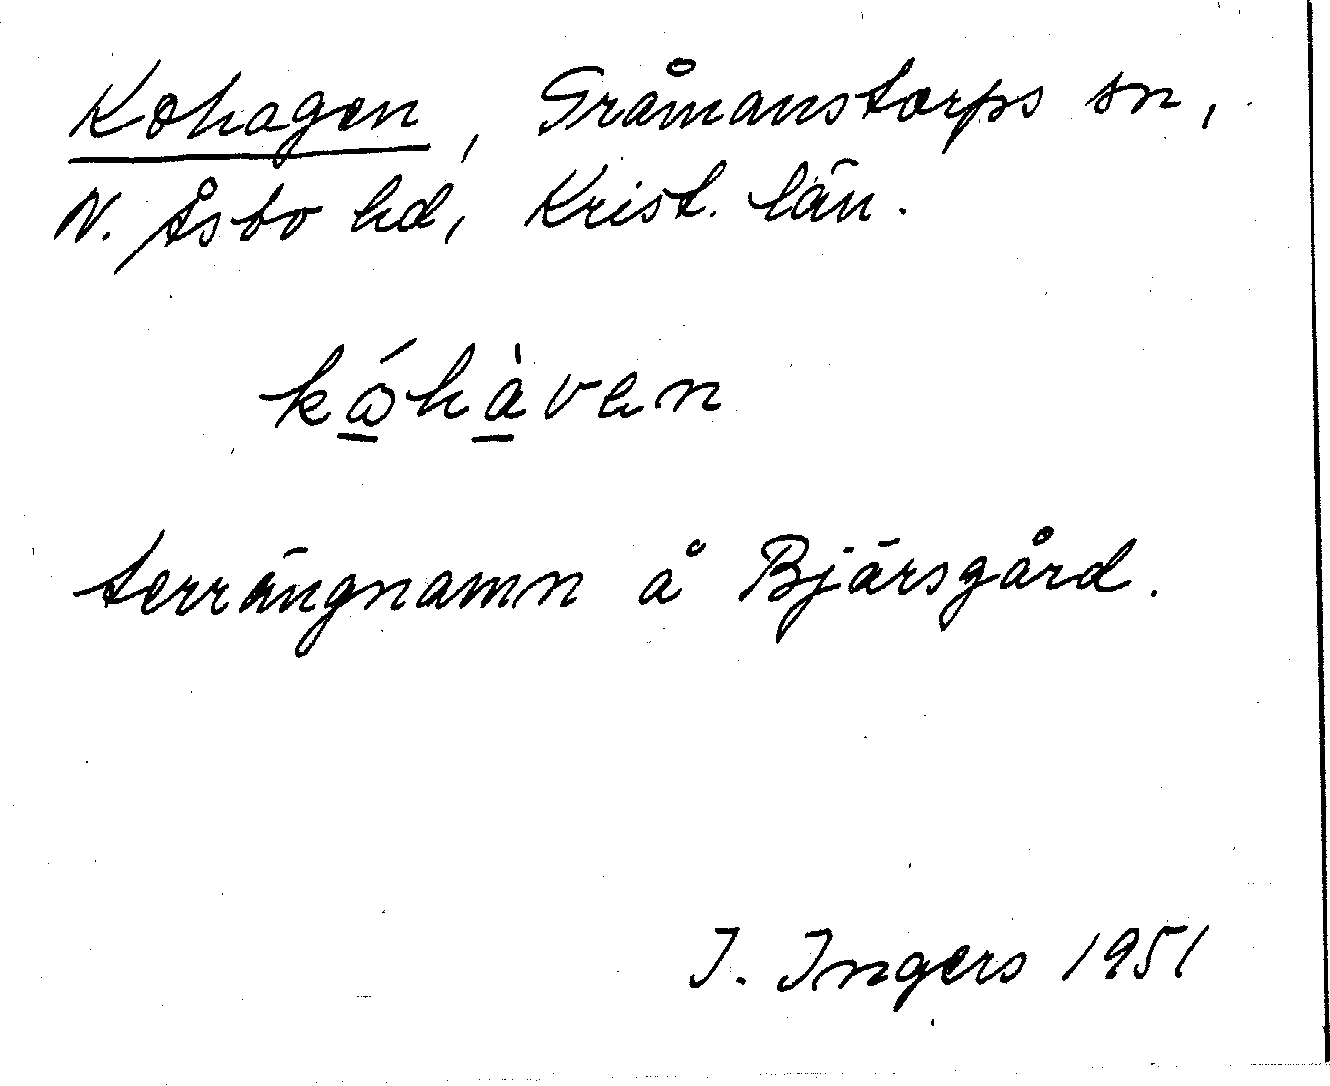 Kohagen, Gråmanstorps sn,
N. Åsbo hd, Krist. län.
kó̲hà̲ven
terrängnamn å Bjärsgård.
I. Ingers 1951